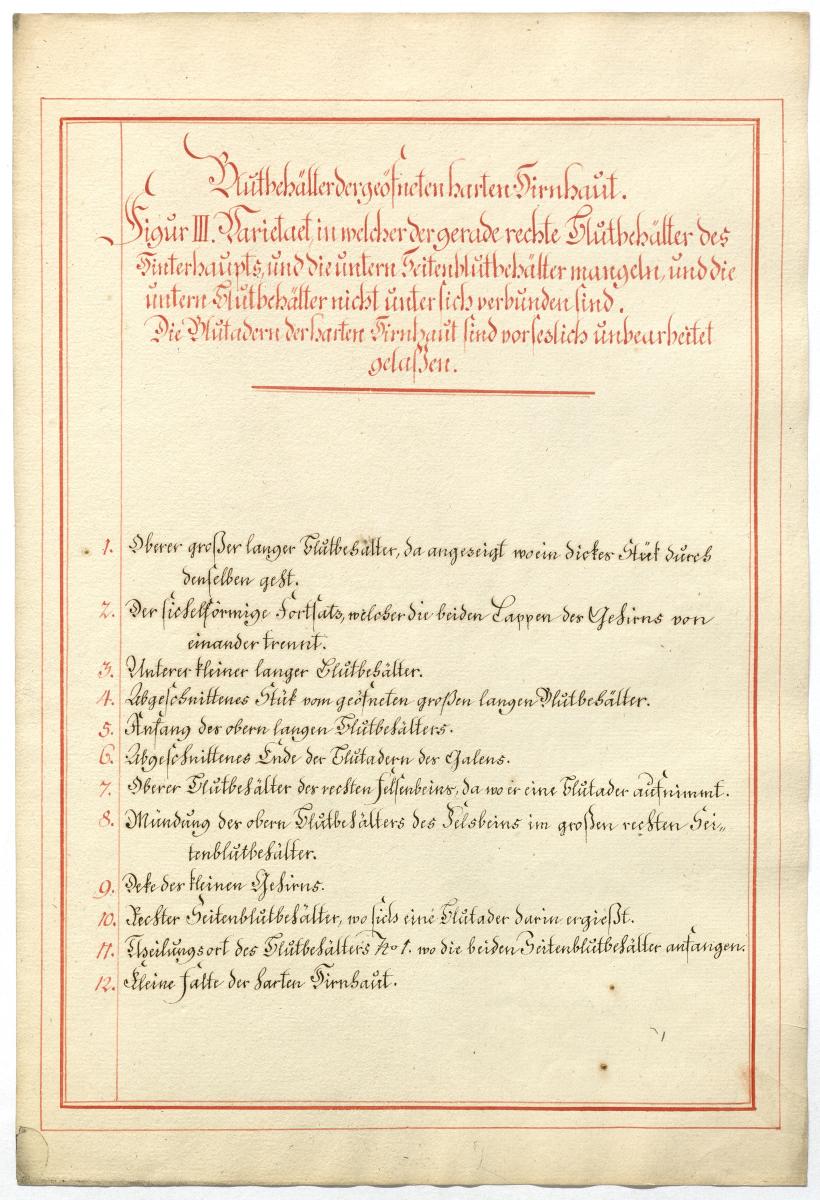 Blutbehälter der geöfneten harten Hirnhaut.
Figur III. Varietaet, in welcher der gerade rechte Blutbehälter des
Hinterhaupts, und die untern Seitenblutbehälter mangeln, und die
untern Blutbehälter nicht unter sich verbunden sind.
Die Blutadern der harten Hirnhaut sind vorsezlich unbearbeitet
gelaßen.
1. Oberer großer langer Blutbehälter, da angezeigt wo ein dickes Stük durch
denselben geht.
2. Der sichelförmige Fortsatz, welcher die beiden Lappen des Gehirns von
einander trennt.
3. Unterer kleiner langer Blutbehälter.
4. Abgeschnittenes Stük vom geöfneten großen langen Blutbehälter.
5. Anfang des obern langen Blutbehälters.
6. Abgeschnittenes Ende der Blutadern des Galens.
7. Oberer Blutbehälter des rechten Felsenbeins, da wo er eine Blutader aufnimmt.
8. Mündung des obern Blutbehälters des Felsbeins im großen rechten Sei-
tenblutbehälter.
9. Deke des kleinen Gehirns.
10. Rechter Seitenblutbehälter, wo sich eine Blutader darin ergießt.
11. Theilungsort des Blutbehälters No 1. wo die beiden Seitenblutbehälter anfangen.
12. Kleine Falte der harten Hirnhaut.